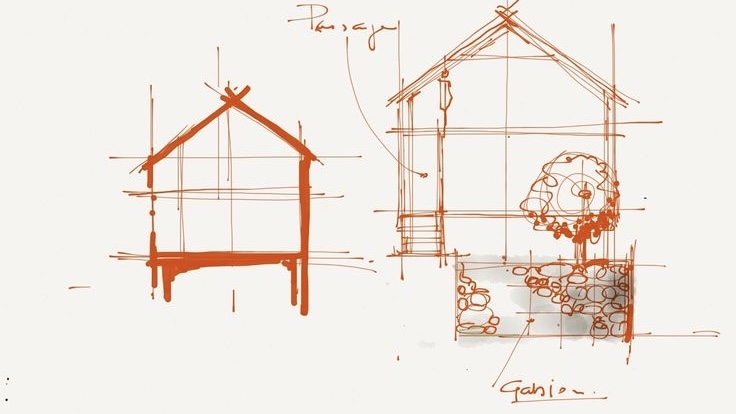 Passage
Gabion.